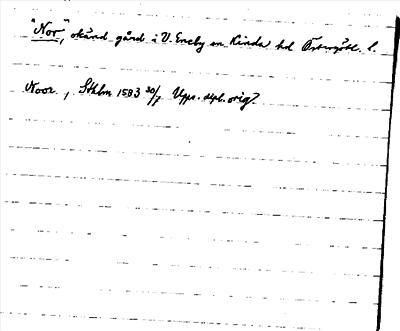 "Nor", okänd gård i V. Eneby sn Kinda hd Östergötl. l.
Noor, Sthlm 1583 30/7 Upps. dipl. orig?